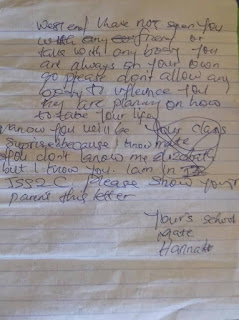 West end I have not seen you
with any friend or
talk with any body you
are always on your own
so please don't allow any
body to influence you
they are planing on how
to take your life
I know you will be Your class
suprise because I know mate
you don't know me
but I know you. I am in
JSS2 C. Please show your
parent this letter
Your's school
mate
Hannah